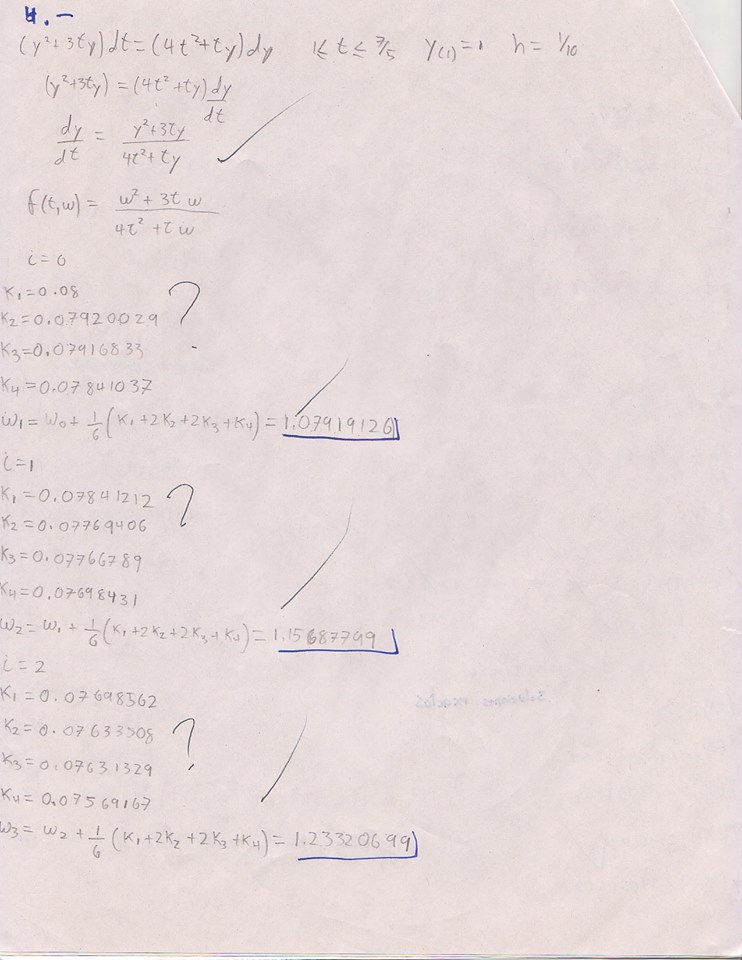 4.-
(y²+3ty)dt=(4t²+ty)dy 1≤ t ≤ 7/5 y(1)=1 h= 1/10
(y²+3ty) = (4t²+ty) dy/dt
dy/dt = y²+3ty / 4t²+ty
f(t,w) = w² + 3t w / 4t² + t w
i=0
K₁=0.08
K₂=0.07920029
?
K₃=0.07916833
K₄=0.07841037
w₁= w₀+ 1/6 (K₁+2K₂+2K₃+K₄) = 1.07919126
i=1
K₁=0.07841212
?
K₂=0.07769406
K₃=0.07766789
K₄=0.07698431
w₂= w₁ + 1/6 (K₁+2K₂+2K₃+K₄) = 1.15687799
i = 2
K₁=0.07698562
K₂=0.07633508
?
K₃=0.07631329
K₄=0.07569167
w₃= w₂ + 1/6 (K₁+2K₂+2K₃+K₄) = 1.23320699